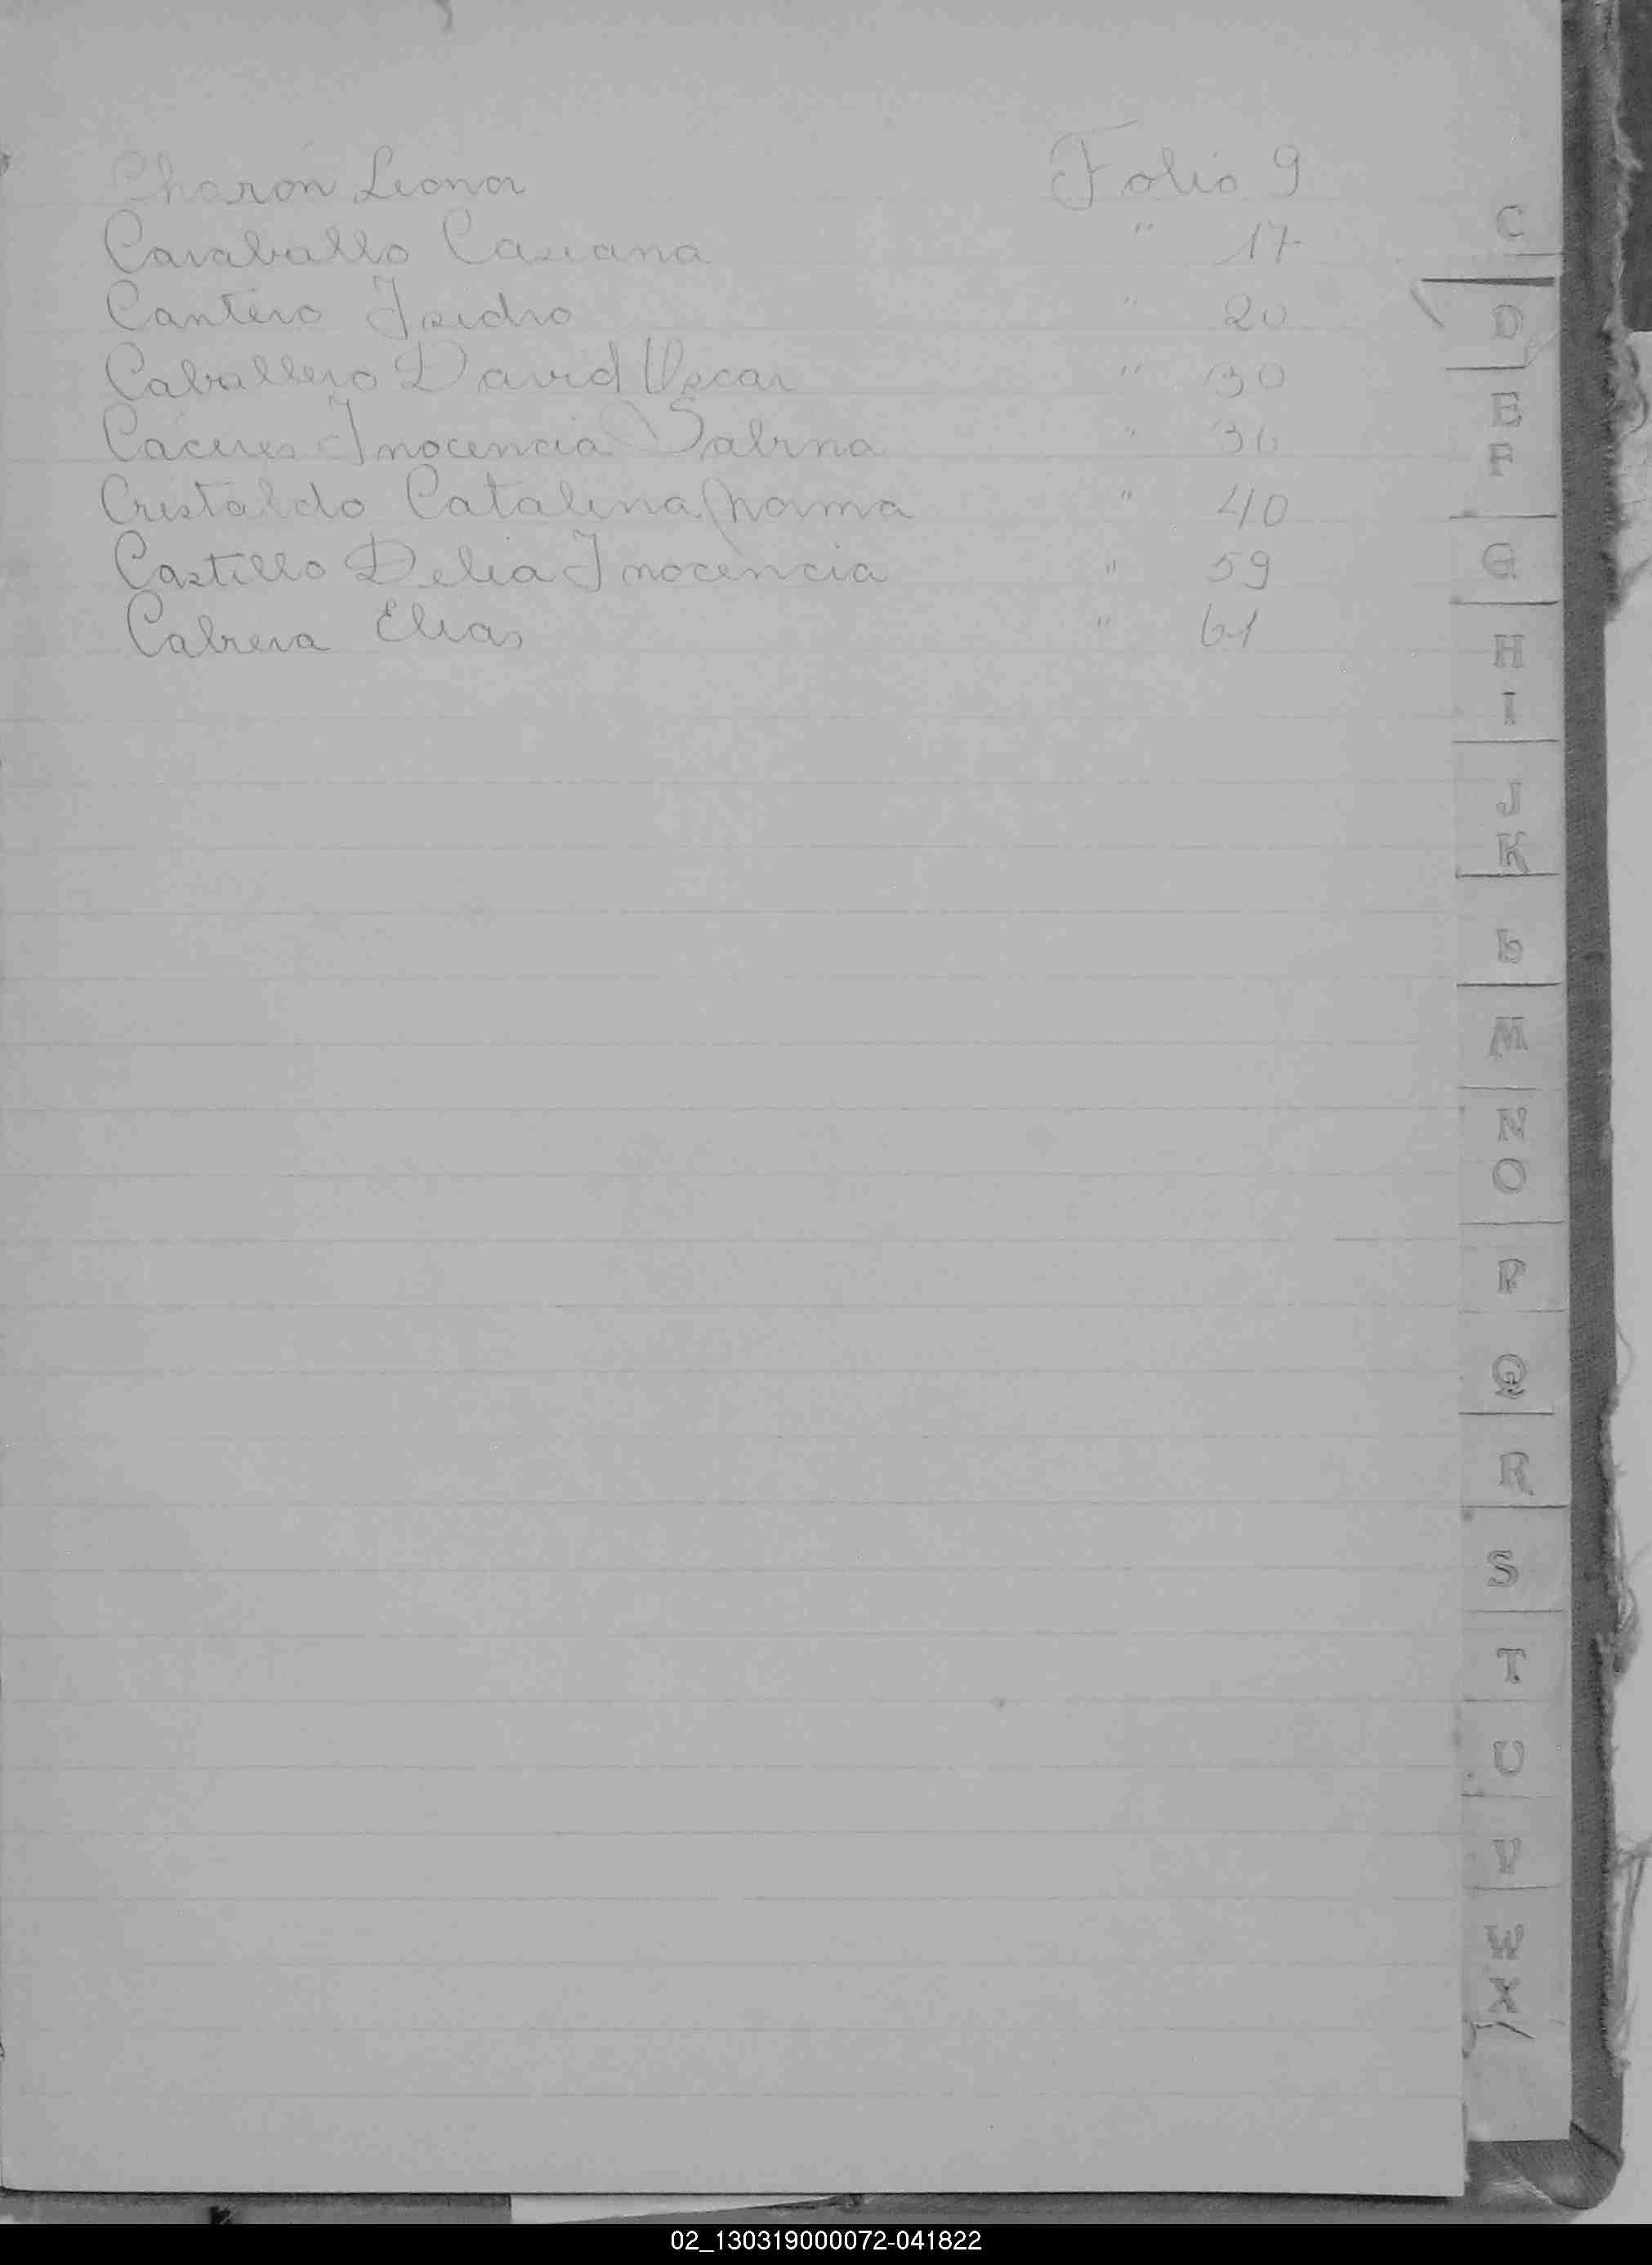 Charón Leonor Folio 9
Caraballo Casiana " 17
Cantero Isidro " 20
Caballero David Oscar " 30
Cáceres Inocencia Sabina " 36
Cristaldo Catalina Norma " 40
Castillo Delia Inocencia " 59
Cabrera Elias " 61
C
D
E
F
G
H
I
J
K
L
M
N
O
P
Q
R
S
T
U
V
W
X
Y
02_130319000072-041822